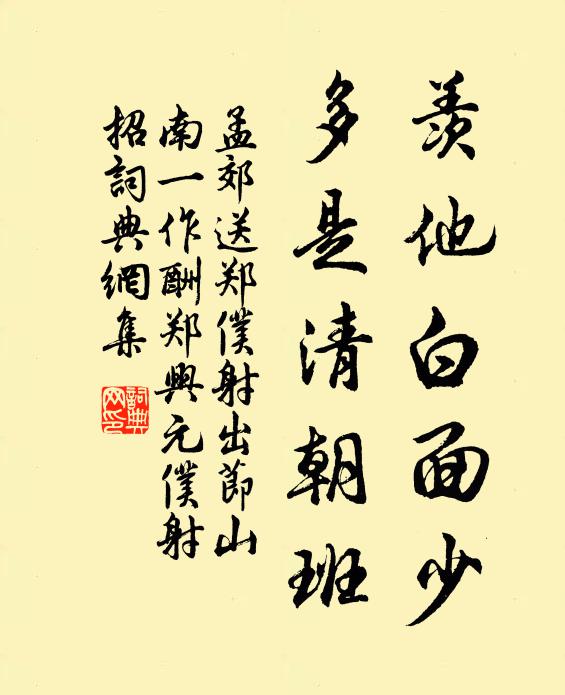 羨他白面少
多是清朝班
孟郊送郑僕射出節山
南一作酬郑興元僕射
招詞典網集
詞典
网印